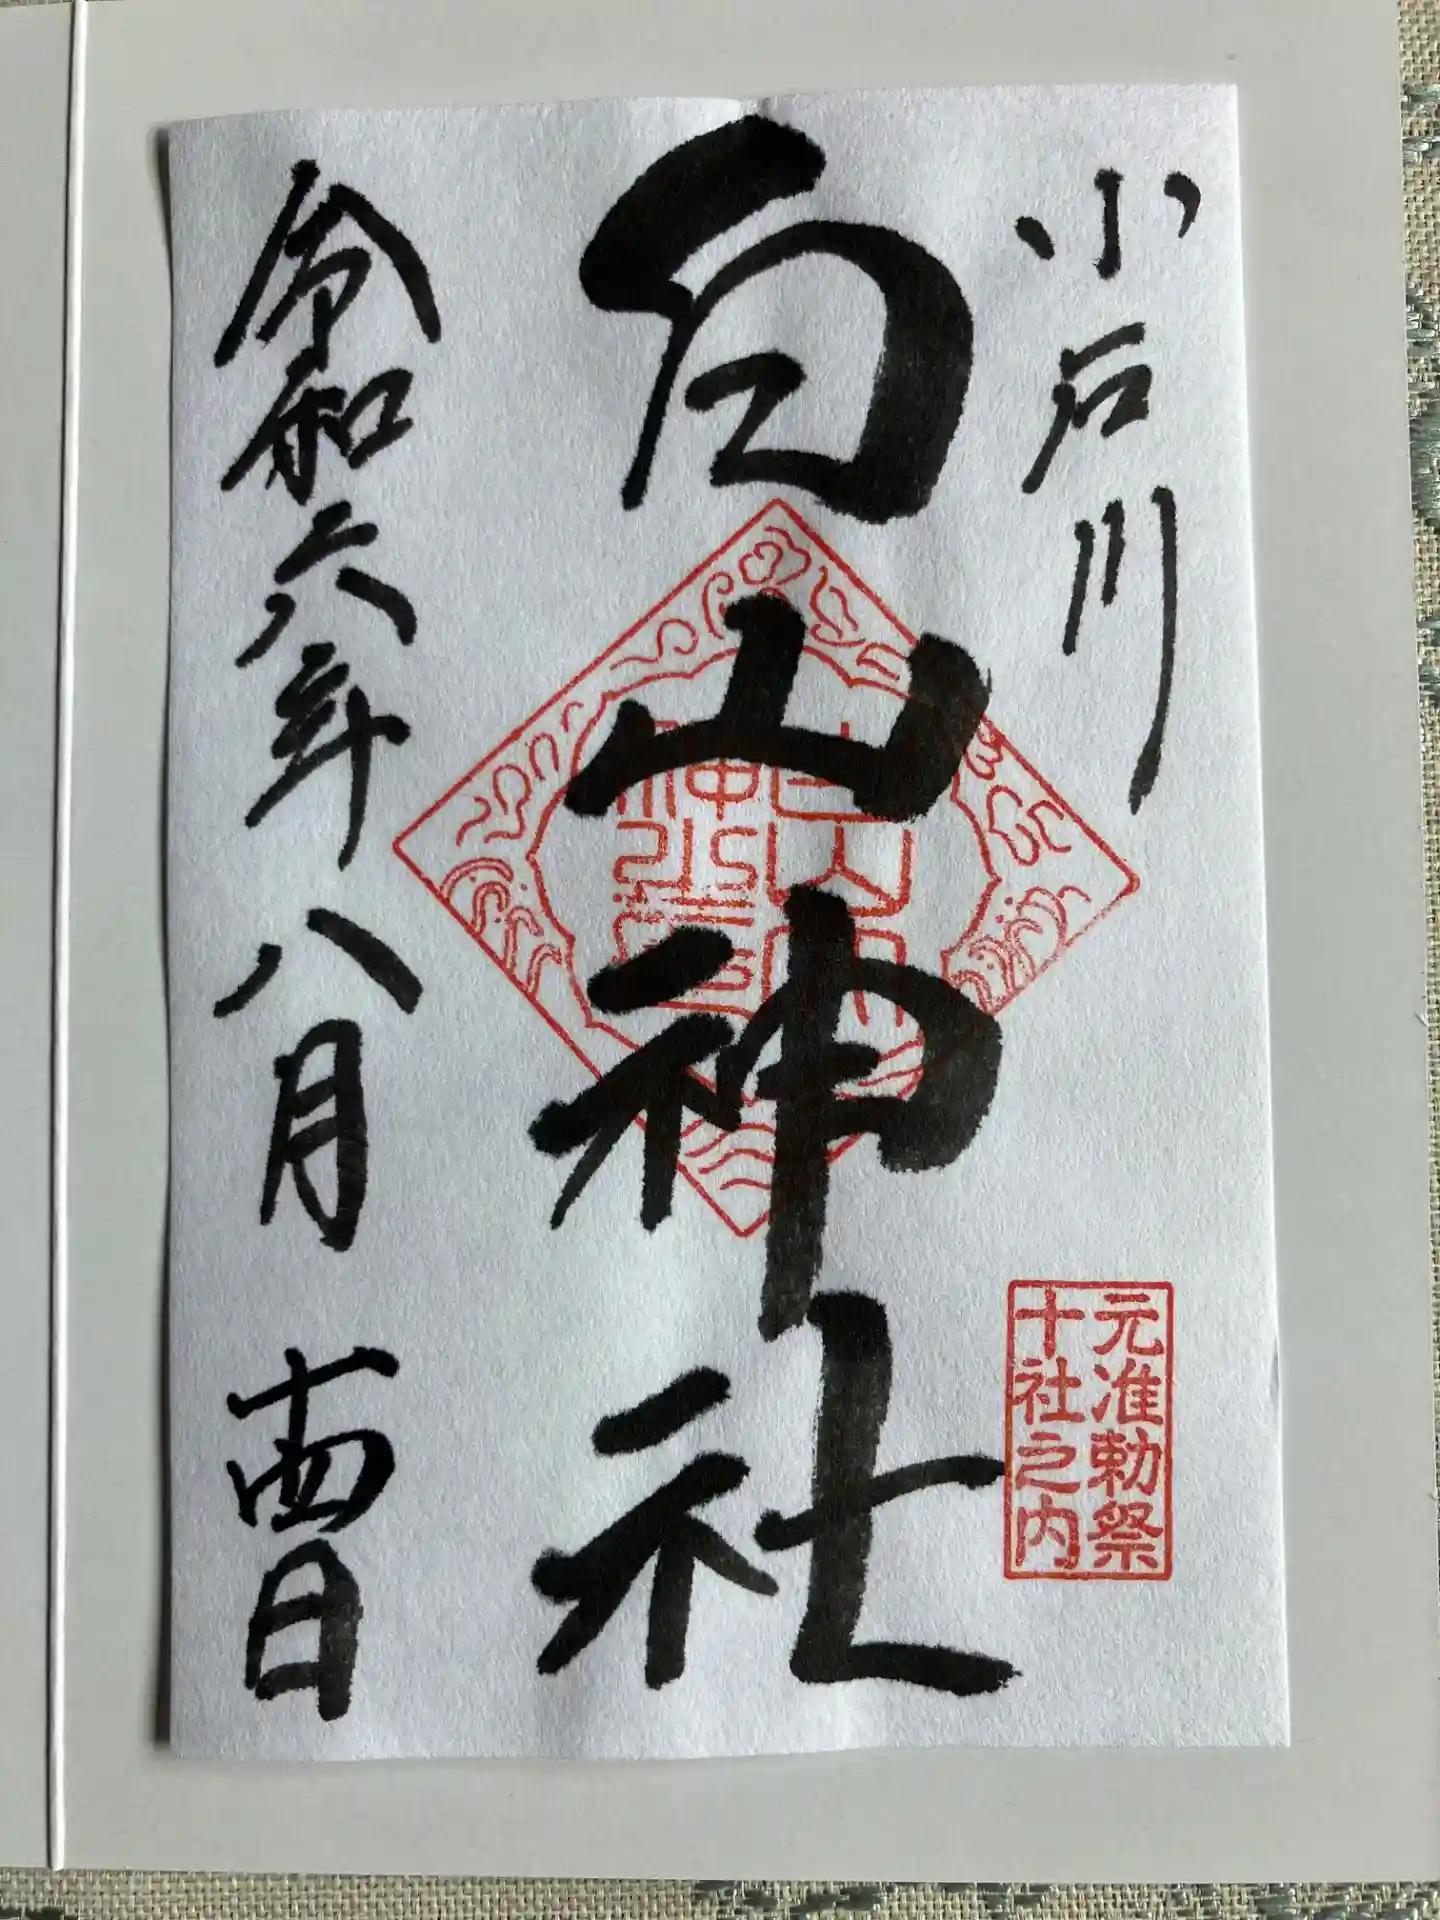 小石川
元准勅祭
十社之内
白山神社
令和六年八月十四日